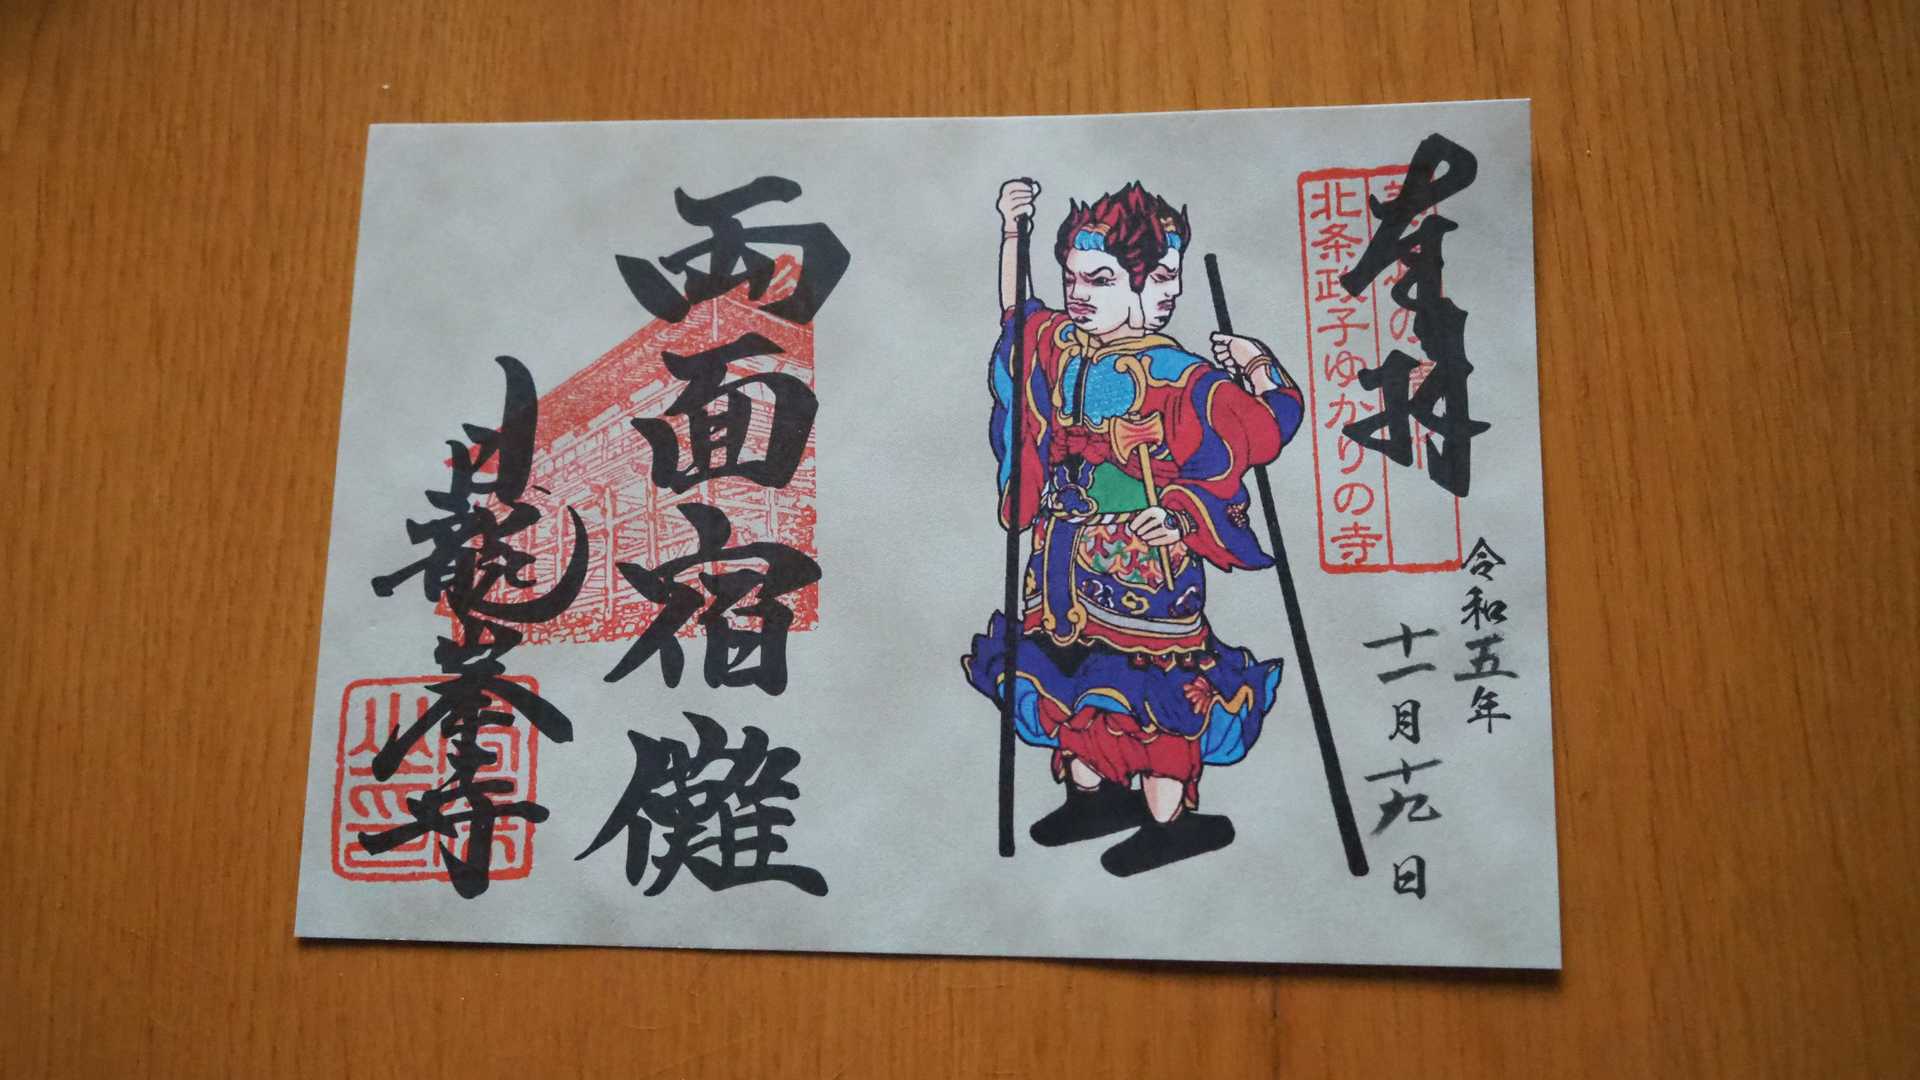 奉拝
北条政子ゆかりの寺
令和五年
十一月十九日
両面宿儺
日龍峯寺